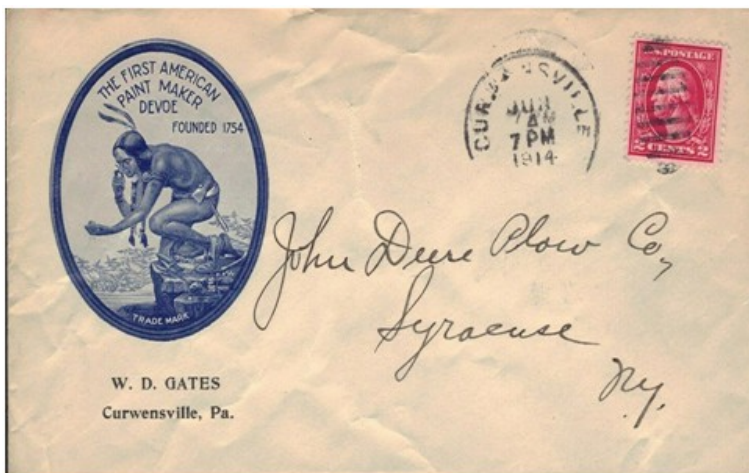 THE FIRST AMERICAN
PAINT MAKER
DEVOE
FOUNDED 1754
TRADE MARK
W. D. GATES
Curwensville, Pa.
CURWENSVILLE
7 PM
1914
U.S. POSTAGE
2 CENTS 2
John Deere Plow Co,
Syracuse
Ny.